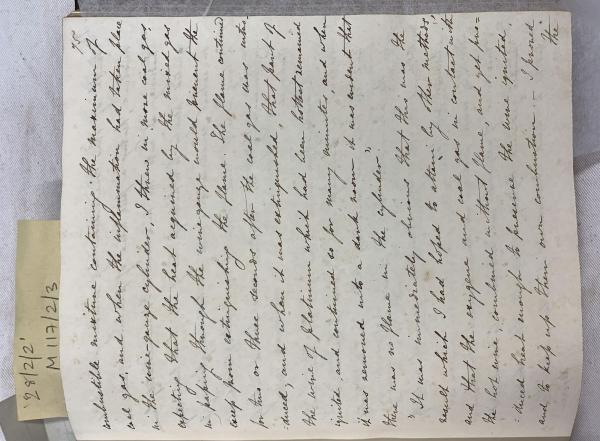 combustible mixture containing the maximum of
coal gas, and when the inflammation had taken place
in the wire-gauge cylinder, I threw in more coal gas,
expecting that the heat acquired by the mixed gas
in passing through the wire-gauge would prevent the
excess from extinguishing the flame. The flame continued
for two or three seconds after the coal gas was intro=
duced; and when it was extinguished, that part of
the wire of platinum which had been hottest remained
ignited and continued so for many minutes, and when
it was removed into a dark room it was evident that
there was no flame in the cylinder."
"It was immediately obvious that this was the
result which I had hoped to attain by other methods,
and that the oxygene and coal gas in contact with
the hot wire, combined without flame and yet pro=
duced heat enough to preserve the wire ignited,
and to keep up their own combustion – I proved
the
'28/2/2'
M117/2/3